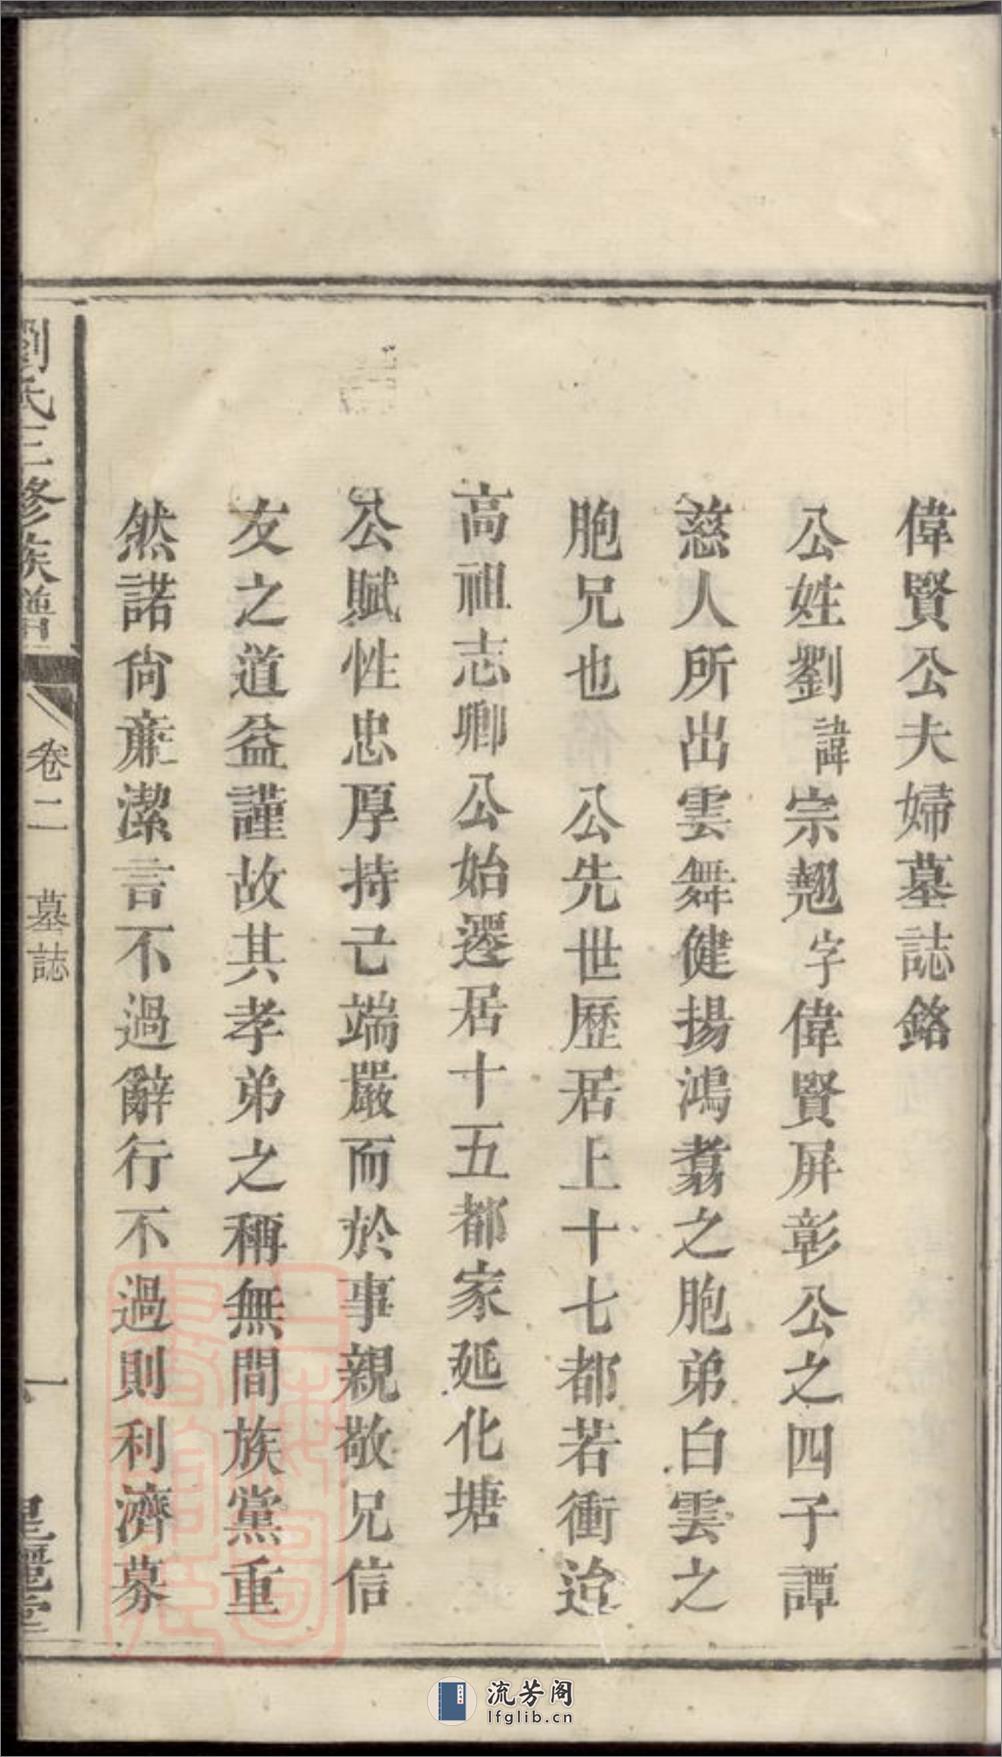 偉賢公夫婦墓誌銘
公姓劉諱宗翹字偉賢屏彰公之四子譚
慈人所出雲舞健揚鴻翥之胞弟白雲之
胞兄也　公先世歷居上十七都若衝迨
高祖志卿公始遷居十五都家延化塘
公賦性忠厚持己端嚴而於事親敬兄信
友之道益謹故其孝弟之稱無間族黨重
然諾尙廉潔言不過辭行不過則利濟募
劉氏三修族譜
卷二　墓誌
一
流芳阁
lfglib.cn